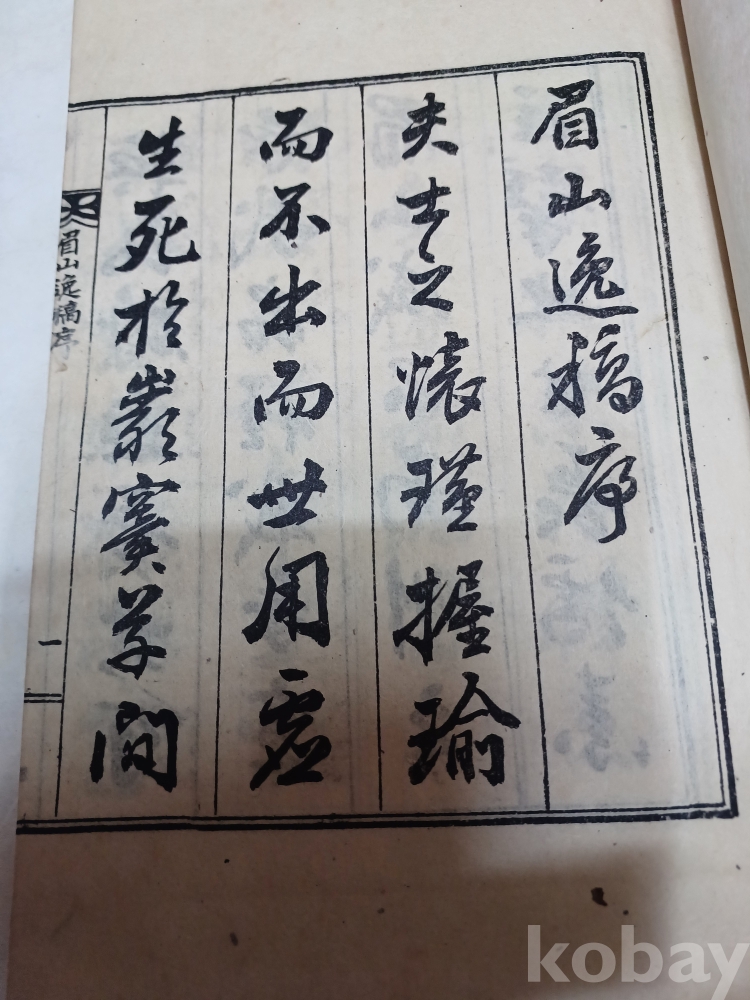 眉山逸稿序
夫士之懷瑾握瑜
而不出而世用虛
生死於巖竇草間
眉山逸稿序
一
kobay